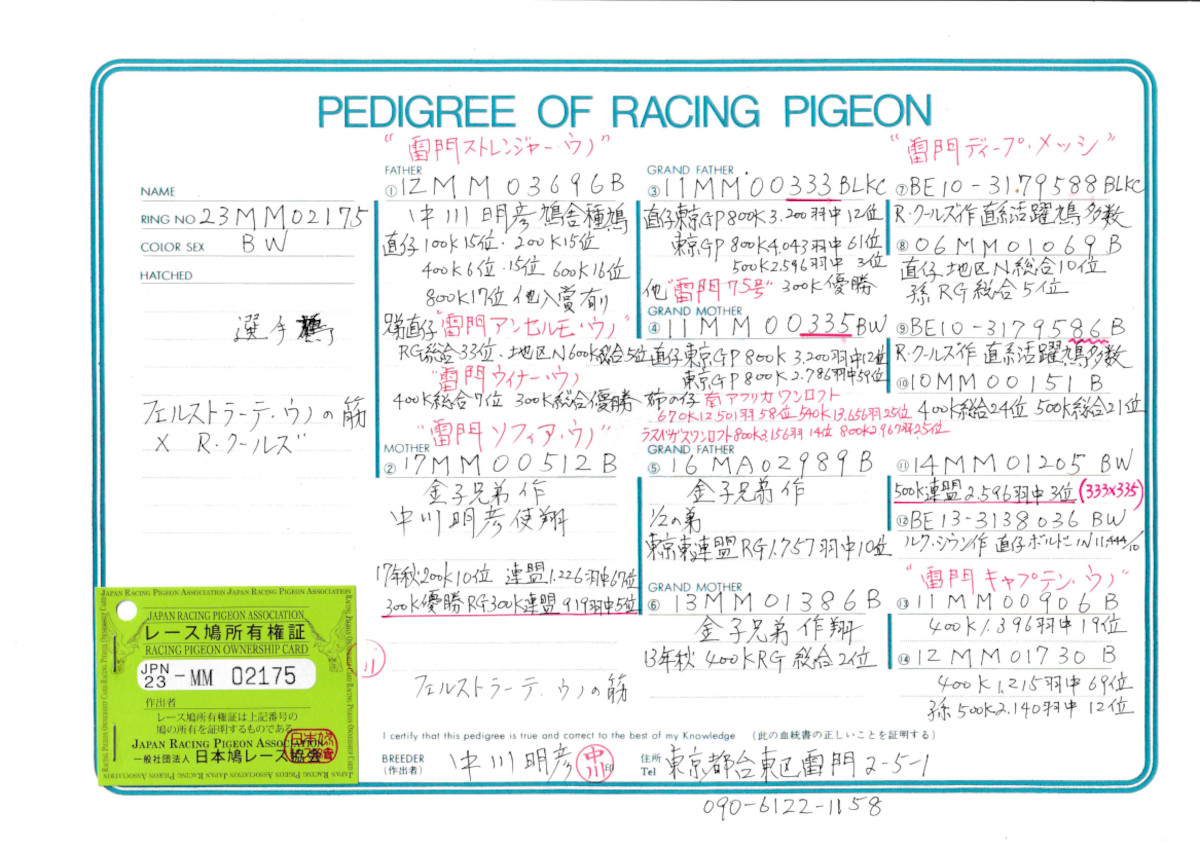 PEDIGREE OF RACING PIGEON
NAME
RING NO 23MM02175
COLOR SEX BW
HATCHED
選手鳩
フェルストラーテ・ウノの筋
× R・クールズ
"雷門ストレンジャー・ウノ"
FATHER
① 12MM03696B
中川明彦鳩舎種鳩
直仔100K15位・200K15位
400K6位・15位 600K16位
800K17位 他入賞有り
直仔"雷門アンセルモ・ウノ"
RG総合33位・地区N600K総合5位
"雷門ウィナー・ウノ"
400K総合7位 300K総合優勝
"雷門ソフィア・ウノ"
MOTHER
② 17MM00512B
金子兄弟作
中川明彦使翔
17年秋200K10位 連盟1.226羽中67位
300K優勝RG300K連盟919羽中5位
フェルストラーテ・ウノの筋
GRAND FATHER
③ 11MM00333BLKC
直仔東京GP800K3.200羽中12位
東京GP800K4.043羽中61位
500K2.596羽中 3位
他"雷門75号" 300K優勝
GRAND MOTHER
④ 11MM00335BW
直仔東京GP800K3.200羽中12位
東京GP800K2.786羽中59位
姉の仔 南アフリカワンロフト
670K12.501羽58位 540K13.656羽25位
ラスベガスワンロフト800K3.156羽14位 800K2.967羽25位
GRAND FATHER
⑤ 16MA02989B
金子兄弟作
1/2の弟
東京東連盟RG1.757羽中10位
GRAND MOTHER
⑥ 13MM01386B
金子兄弟作翔
13年秋400KRG総合2位
"雷門ディープ・メッシ"
⑦ BE10-3179588BLKC
R・クールズ作 直系活躍鳩多数
⑧ 06MM01069B
直仔 地区N総合10位
孫RG総合5位
⑨ BE10-3179586B
R・クールズ作 直系活躍鳩多数
⑩ 10MM00151B
400K総合24位 500K総合21位
⑪ 14MM01205BW
500K連盟2.596羽中3位(333×335)
⑫ BE13-3138036BW
ルク・シウン作 直仔ボルドーIN11,444/10
"雷門キャプテン・ウノ"
⑬ 11MM00906B
400K1.396羽中19位
⑭ 12MM01730B
400K1.215羽中69位
孫500K2.140羽中12位
I certify that this pedigree is true and correct to the best of my Knowledge (此の血統書の正しいことを証明する)
BREEDER
(作出者)
中川明彦
中川印
住所
Tel
東京都台東区雷門2-5-1
090-6122-1158
JAPAN RACING PIGEON ASSOCIATION
レース鳩所有権証
RACING PIGEON OWNERSHIP CARD
JPN
23 -MM 02175
作出者
レース鳩所有権証は上記番号の
鳩の所有を証明するものである
JAPAN RACING PIGEON ASSOCIATION
一般社団法人 日本鳩レース協会